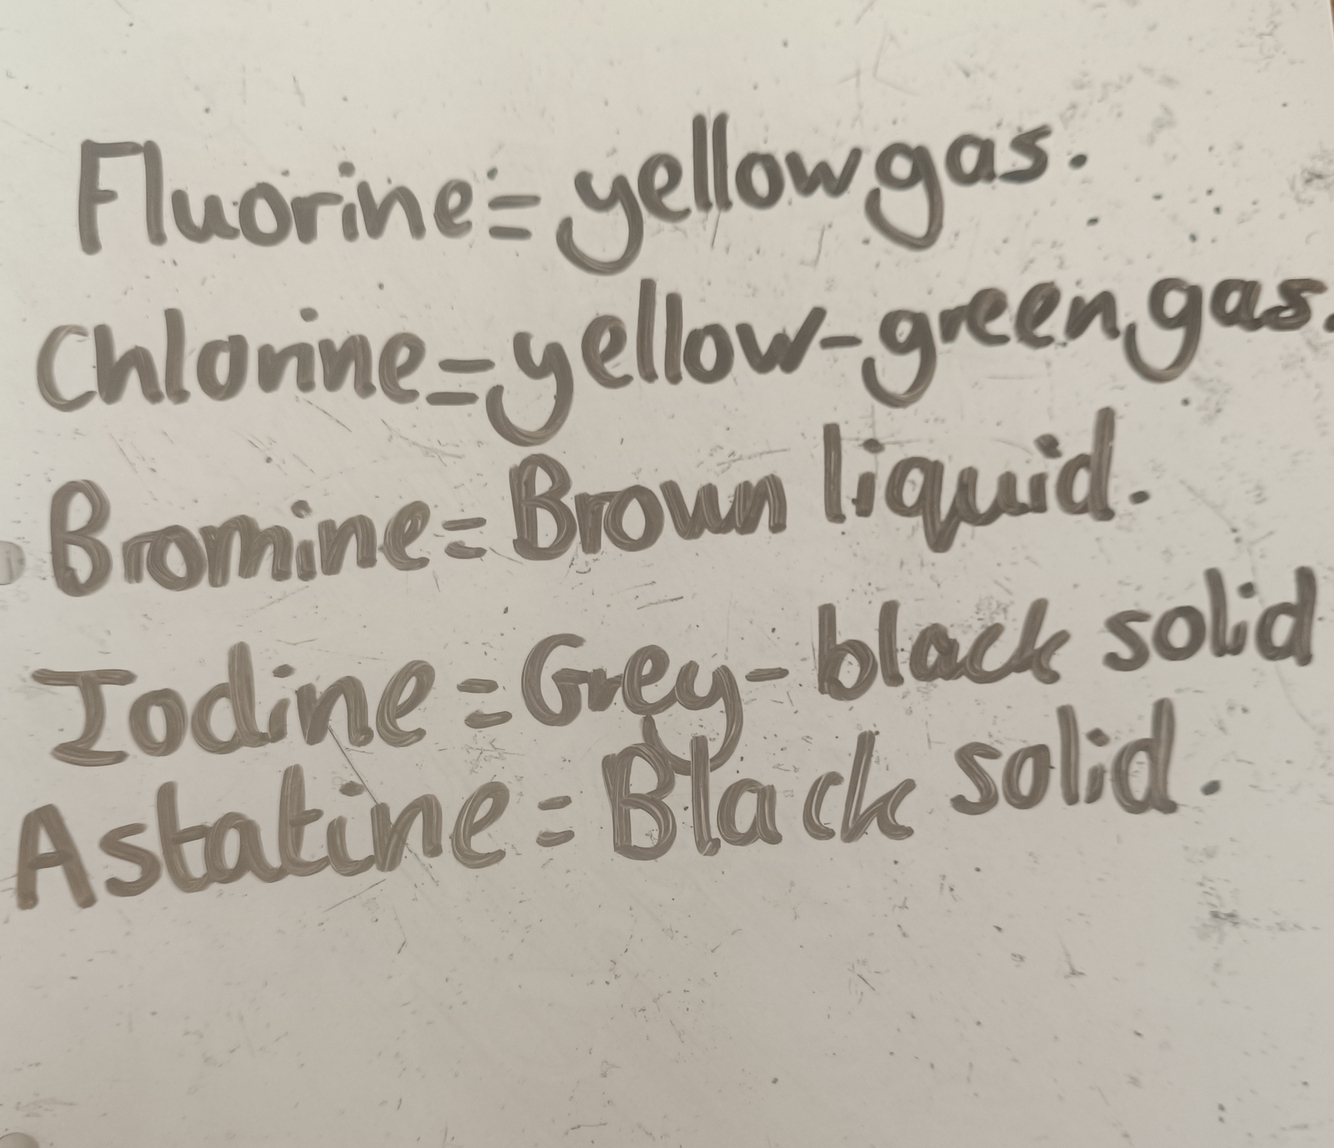 Fluorine = yellow gas.
Chlorine = yellow-green gas.
Bromine = Brown liquid.
Iodine = Grey-black solid
Astatine = Black solid.